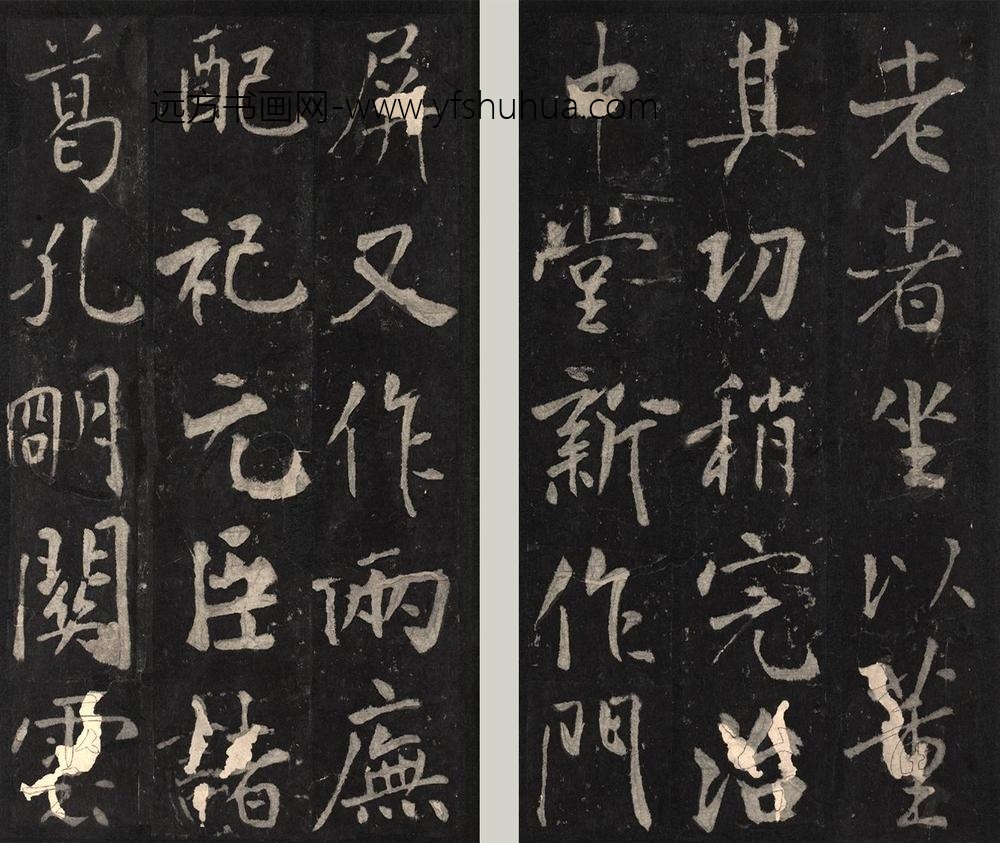 老者坐以董
其功稍完治
中堂新作門
屏又作兩廡
配祀元臣諸
葛孔明關雲
远方书画网-www.yfshuhua.com